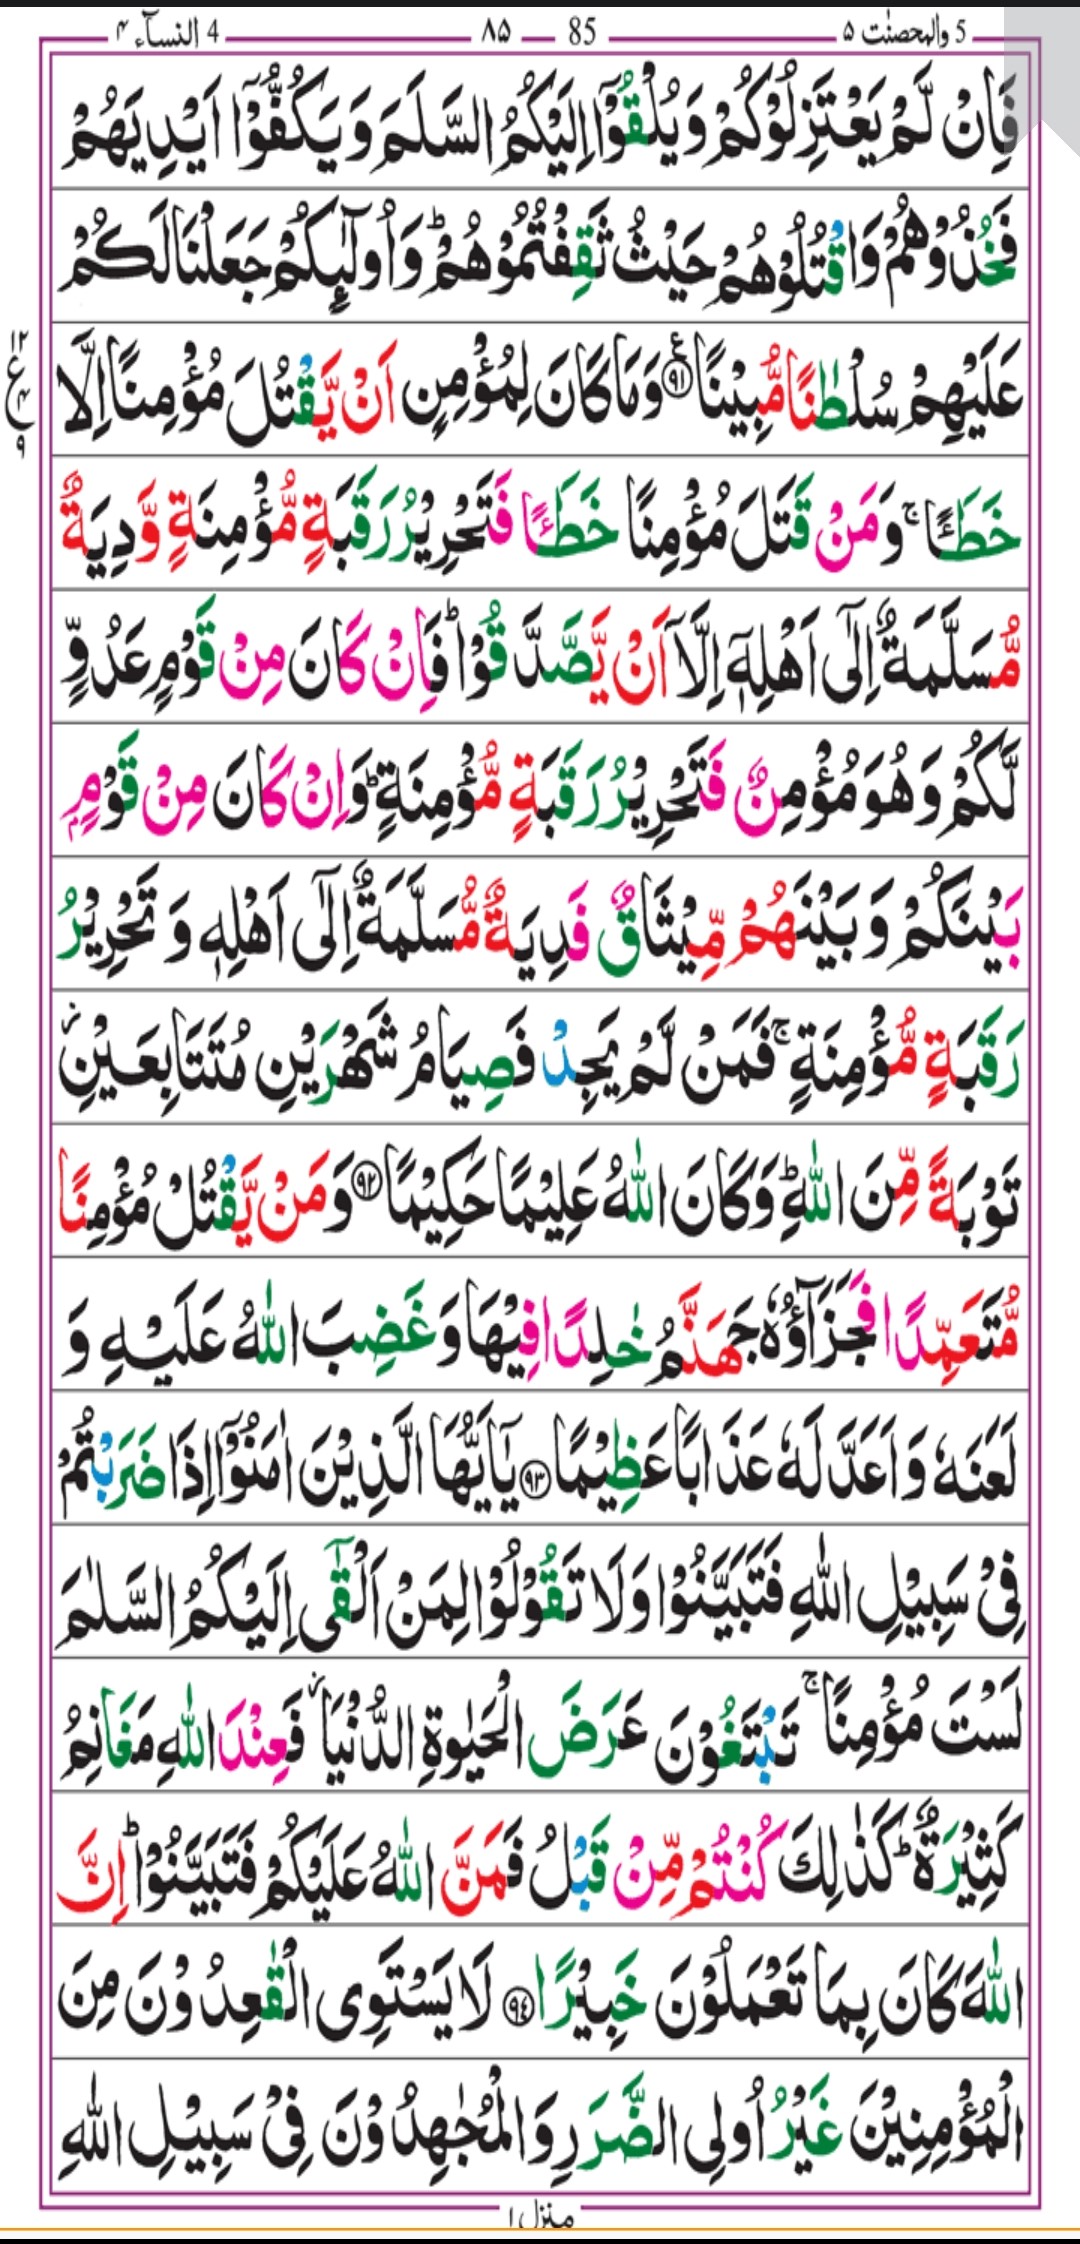 5 والمحصنٰت ۵ 85 — ۸۵ 4 النسآء ۴
فَاِنْ لَّمْ يَعْتَزِلُوْكُمْ وَيُلْقُوْۤا اِلَيْكُمُ السَّلَمَ وَ يَكُفُّوْۤا اَيْدِيَهُمْ
فَخُذُوْهُمْ وَاقْتُلُوْهُمْ حَيْثُ ثَقِفْتُمُوْهُمْ ؕ وَاُولٰٓئِكُمْ جَعَلْنَا لَكُمْ
عَلَيْهِمْ سُلْطٰنًا مُّبِيْنًا ﴿۹۱﴾ ع وَمَا كَانَ لِمُؤْمِنٍ اَنْ يَّقْتُلَ مُؤْمِنًا اِلَّا
۱۲ ع ۴ ۹
خَطَئًا ۚ وَمَنْ قَتَلَ مُؤْمِنًا خَطَئًا فَتَحْرِيْرُ رَقَبَةٍ مُّؤْمِنَةٍ وَّدِيَةٌ
مُّسَلَّمَةٌ اِلٰٓى اَهْلِهٖۤ اِلَّاۤ اَنْ يَّصَّدَّقُوْا ؕ فَاِنْ كَانَ مِنْ قَوْمٍ عَدُوٍّ
لَّكُمْ وَهُوَ مُؤْمِنٌ فَتَحْرِيْرُ رَقَبَةٍ مُّؤْمِنَةٍ ؕ وَاِنْ كَانَ مِنْ قَوْمٍۭ
بَيْنَكُمْ وَ بَيْنَهُمْ مِّيْثَاقٌ فَدِيَةٌ مُّسَلَّمَةٌ اِلٰٓى اَهْلِهٖ وَ تَحْرِيْرُ
رَقَبَةٍ مُّؤْمِنَةٍ ۚ فَمَنْ لَّمْ يَجِدْ فَصِيَامُ شَهْرَيْنِ مُتَتَابِعَيْنِ ؗ
تَوْبَةً مِّنَ اللّٰهِ ؕ وَكَانَ اللّٰهُ عَلِيْمًا حَكِيْمًا ﴿۹۲﴾ وَمَنْ يَّقْتُلْ مُؤْمِنًا
مُّتَعَمِّدًا فَجَزَآؤُهٗ جَهَنَّمُ خٰلِدًا فِيْهَا وَغَضِبَ اللّٰهُ عَلَيْهِ وَ
لَعَنَهٗ وَ اَعَدَّ لَهٗ عَذَابًا عَظِيْمًا ﴿۹۳﴾ يٰۤاَيُّهَا الَّذِيْنَ اٰمَنُوْۤا اِذَا ضَرَبْتُمْ
فِىْ سَبِيْلِ اللّٰهِ فَتَبَيَّنُوْا وَلَا تَقُوْلُوْا لِمَنْ اَلْقٰٓى اِلَيْكُمُ السَّلٰمَ
لَسْتَ مُؤْمِنًا ۚ تَبْتَغُوْنَ عَرَضَ الْحَيٰوةِ الدُّنْيَا ؗ فَعِنْدَ اللّٰهِ مَغَانِمُ
كَثِيْرَةٌ ؕ كَذٰلِكَ كُنْتُمْ مِّنْ قَبْلُ فَمَنَّ اللّٰهُ عَلَيْكُمْ فَتَبَيَّنُوْا ؕ اِنَّ
اللّٰهَ كَانَ بِمَا تَعْمَلُوْنَ خَبِيْرًا ﴿۹۴﴾ لَا يَسْتَوِى الْقٰعِدُوْنَ مِنَ
الْمُؤْمِنِيْنَ غَيْرُ اُولِى الضَّرَرِ وَ الْمُجٰهِدُوْنَ فِىْ سَبِيْلِ اللّٰهِ
منزل ۱